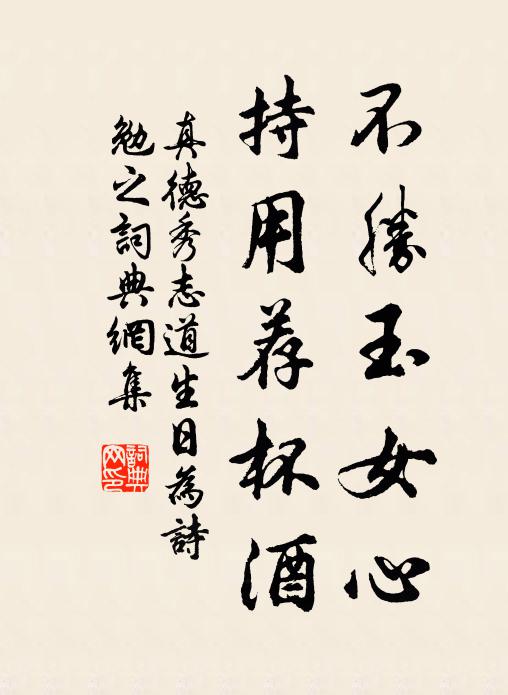 不勝玉女心
持用荐杯酒
真德秀志道生日為詩
勉之詞典網集
詞典
网印